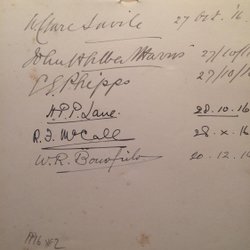 Clare Savile 27 Oct. '16
John H Alben Harris 27/10/1
C E Phipps 27/10/1
H.P.P. Lane. 28.10.16
R.J. McCall 28.X.16
W.R. Bousfield 20.12.1